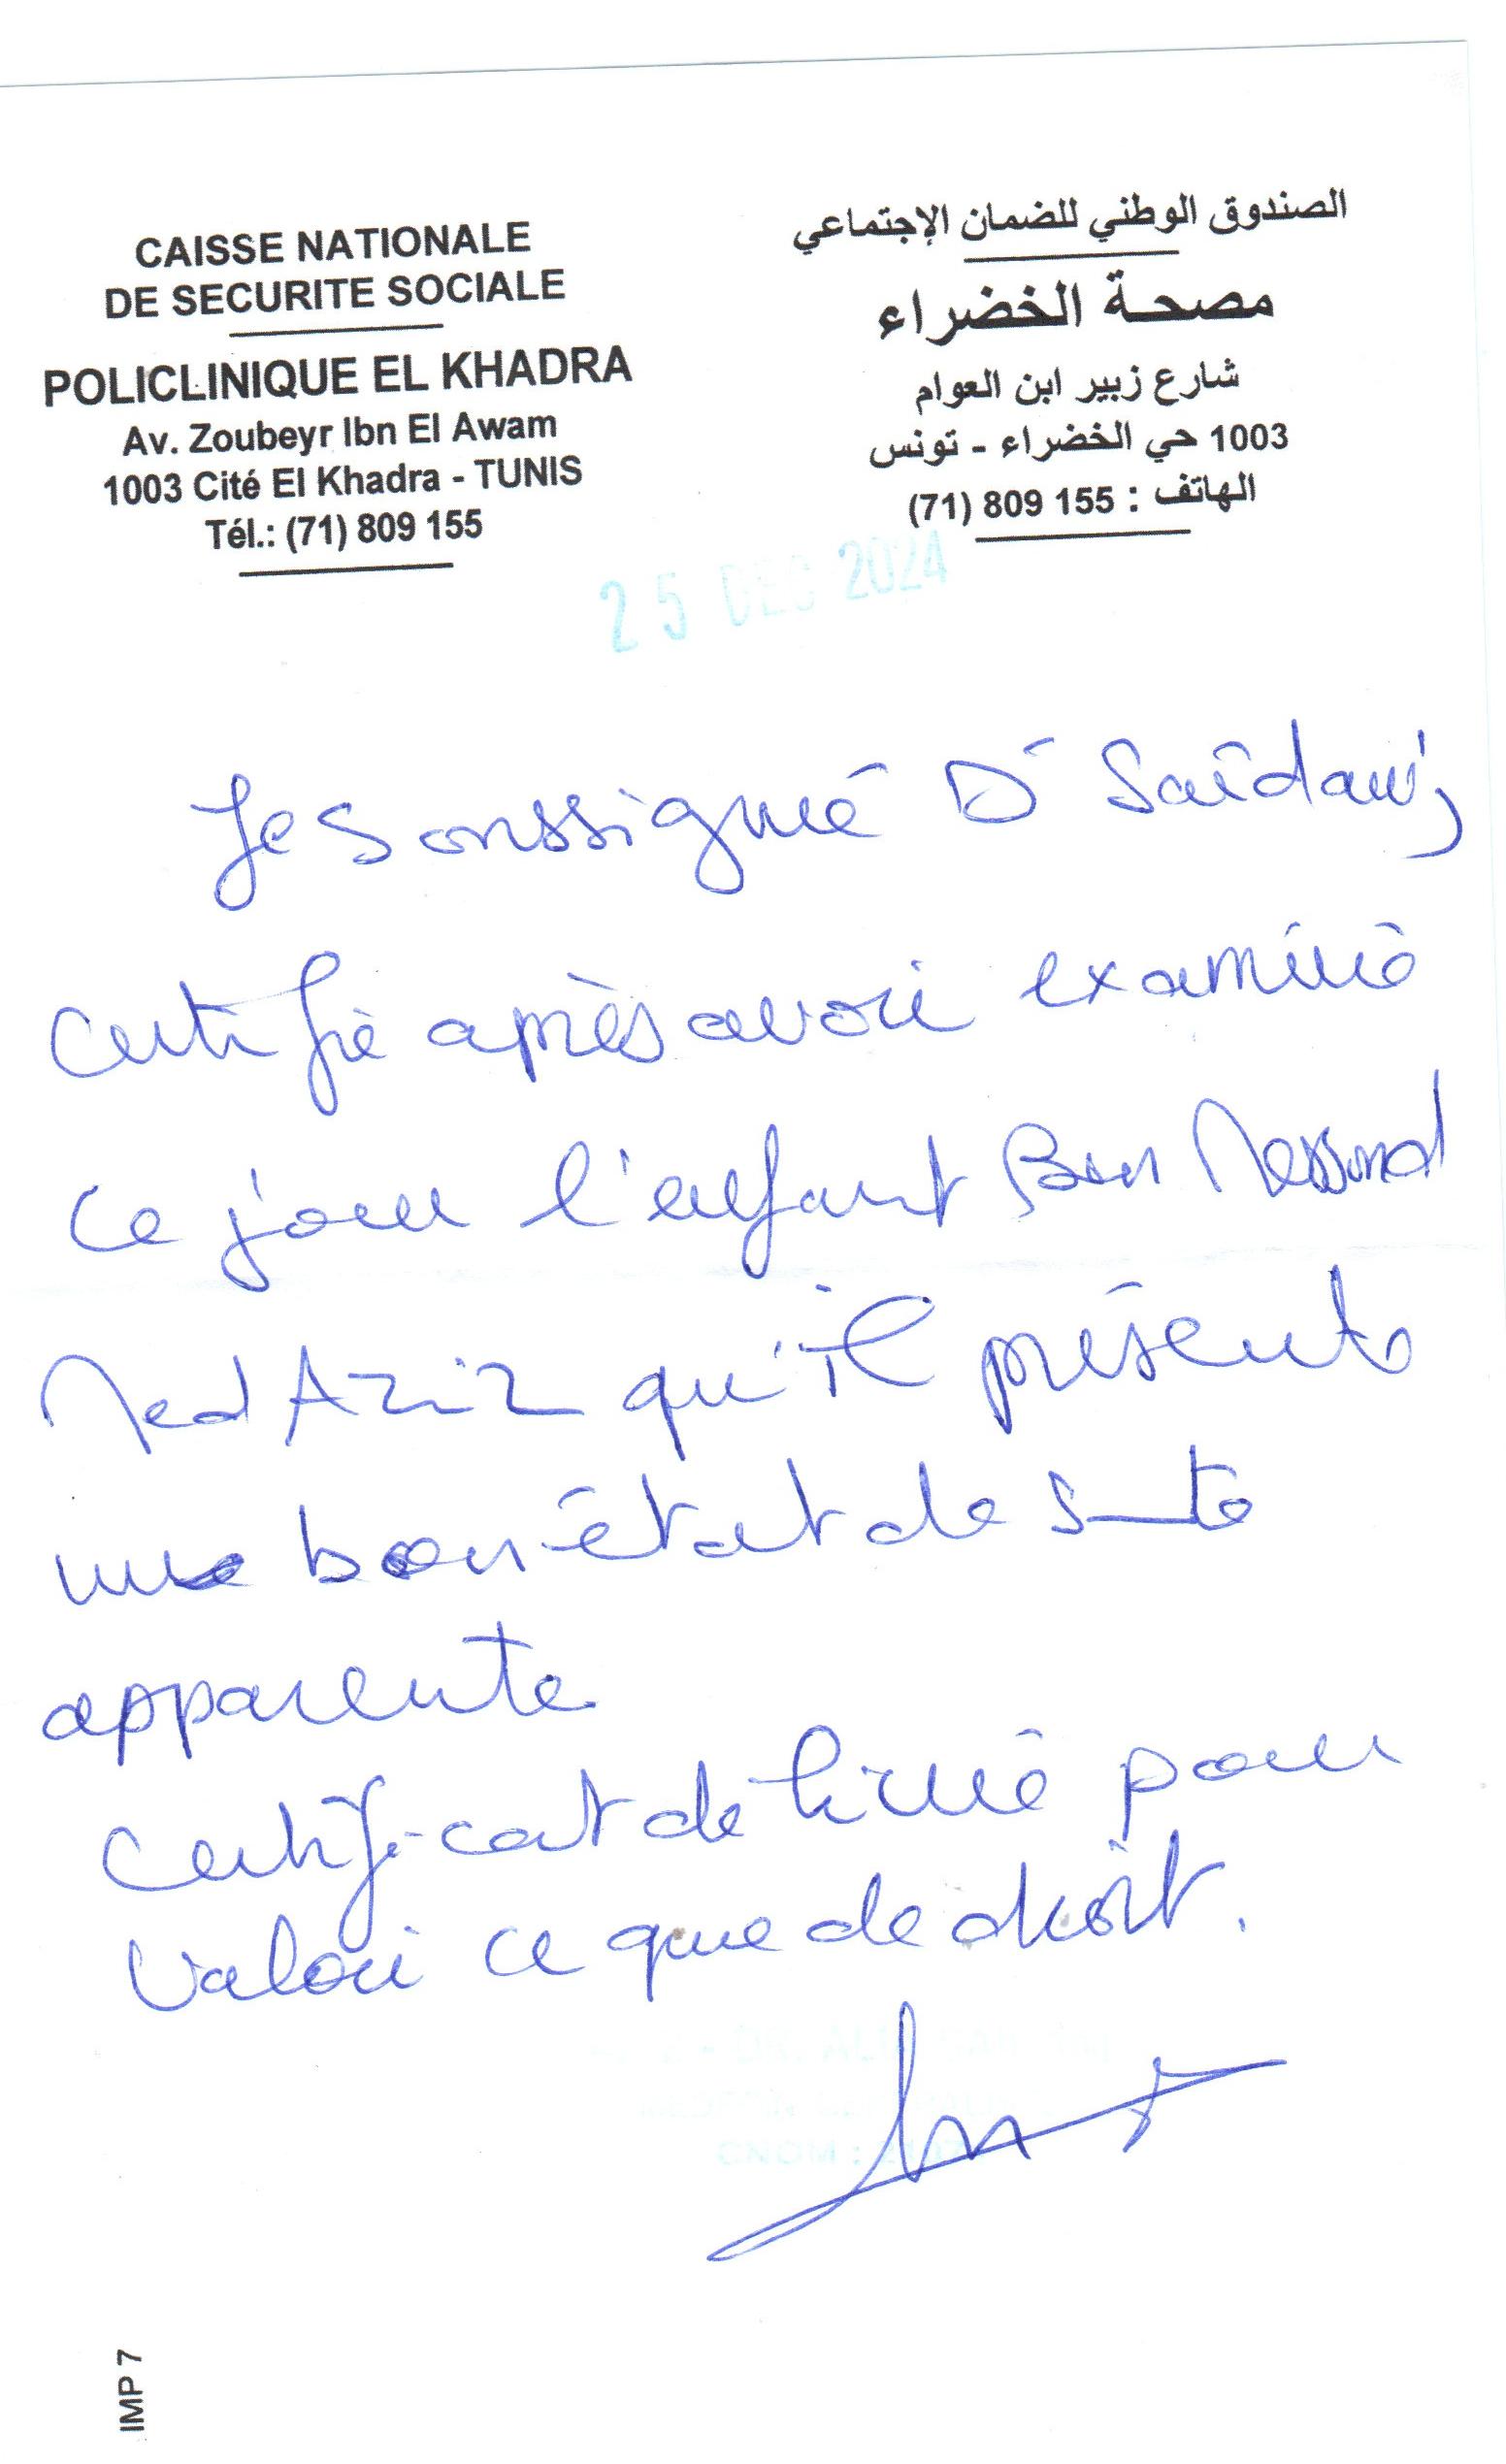 CAISSE NATIONALE
DE SECURITE SOCIALE
POLICLINIQUE EL KHADRA
Av. Zoubeyr Ibn El Awam
1003 Cité El Khadra - TUNIS
Tél.: (71) 809 155
الصندوق الوطني للضمان الإجتماعي
مصحة الخضراء
شارع زبير ابن العوام
1003 حي الخضراء - تونس
الهاتف : 155 809 (71)
25 DEC 2024
Je soussigné Dr Saïdani,
certifie après avoir examiné
ce jour l'enfant Ben Messoud
Med Aziz qu'il présente
une bon état de santé
apparente
Certificat delivré pour
valoir ce que de droit.
DR. ALI
CNOM :
IMP 7